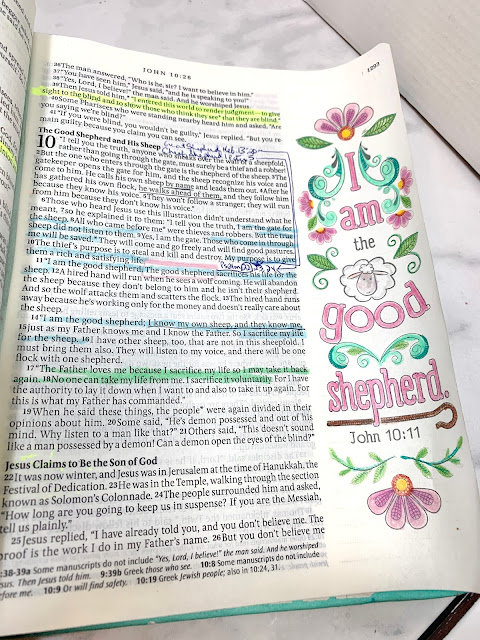 JOHN 10:26
1293
36The man answered, "Who is he, sir? I want to believe in him."
37"You have seen him," Jesus said, "and he is speaking to you!"
38"Yes, Lord, I believe!" the man said. And he worshiped Jesus.
39Then Jesus told him,* "I entered this world to render judgment—to give
sight to the blind and to show those who think they see* that they are blind."
40Some Pharisees who were standing nearby heard him and asked, "Are
you saying we're blind?"
41"If you were blind, you wouldn't be guilty," Jesus replied. "But you re-
main guilty because you claim you can see.
The Good Shepherd and His Sheep
10 "I tell you the truth, anyone who sneaks over the wall of a sheepfold,
rather than going through the gate, must surely be a thief and a robber!
2But the one who enters through the gate is the shepherd of the sheep. 3The
gatekeeper opens the gate for him, and the sheep recognize his voice and
come to him. He calls his own sheep by name and leads them out. 4After he
has gathered his own flock, he walks ahead of them, and they follow him
because they know his voice. 5They won't follow a stranger; they will run
from him because they don't know his voice."
6Those who heard Jesus use this illustration didn't understand what he
meant, 7so he explained it to them: "I tell you the truth, I am the gate for
the sheep. 8All who came before me* were thieves and robbers. But the true
sheep did not listen to them. 9Yes, I am the gate. Those who come in through
me will be saved.* They will come and go freely and will find good pastures.
10The thief's purpose is to steal and kill and destroy. My purpose is to give
them a rich and satisfying life.
11"I am the good shepherd. The good shepherd sacrifices his life for the
sheep. 12A hired hand will run when he sees a wolf coming. He will abandon
the sheep because they don't belong to him and he isn't their shepherd.
And so the wolf attacks them and scatters the flock. 13The hired hand runs
away because he's working only for the money and doesn't really care about
the sheep.
14"I am the good shepherd; I know my own sheep, and they know me,
15just as my Father knows me and I know the Father. So I sacrifice my life
for the sheep. 16I have other sheep, too, that are not in this sheepfold. I
must bring them also. They will listen to my voice, and there will be one
flock with one shepherd.
17"The Father loves me because I sacrifice my life so I may take it back
again. 18No one can take my life from me. I sacrifice it voluntarily. For I have
the authority to lay it down when I want to and also to take it up again. For
this is what my Father has commanded."
19When he said these things, the people* were again divided in their
opinions about him. 20Some said, "He's demon possessed and out of his
mind. Why listen to a man like that?" 21Others said, "This doesn't sound
like a man possessed by a demon! Can a demon open the eyes of the blind?"
Jesus Claims to Be the Son of God
22It was now winter, and Jesus was in Jerusalem at the time of Hanukkah, the
Festival of Dedication. 23He was in the Temple, walking through the section
known as Solomon's Colonnade. 24The people surrounded him and asked,
"How long are you going to keep us in suspense? If you are the Messiah,
tell us plainly."
25Jesus replied, "I have already told you, and you don't believe me. The
proof is the work I do in my Father's name. 26But you don't believe me
:38-39a Some manuscripts do not include "Yes, Lord, I believe!" the man said. And he worshiped
Jesus. Then Jesus told him. 9:39b Greek those who see. 10:8 Some manuscripts do not include
before me. 10:9 Or will find safety. 10:19 Greek Jewish people; also in 10:24, 31.
I
am
the
good
shepherd.
John 10:11